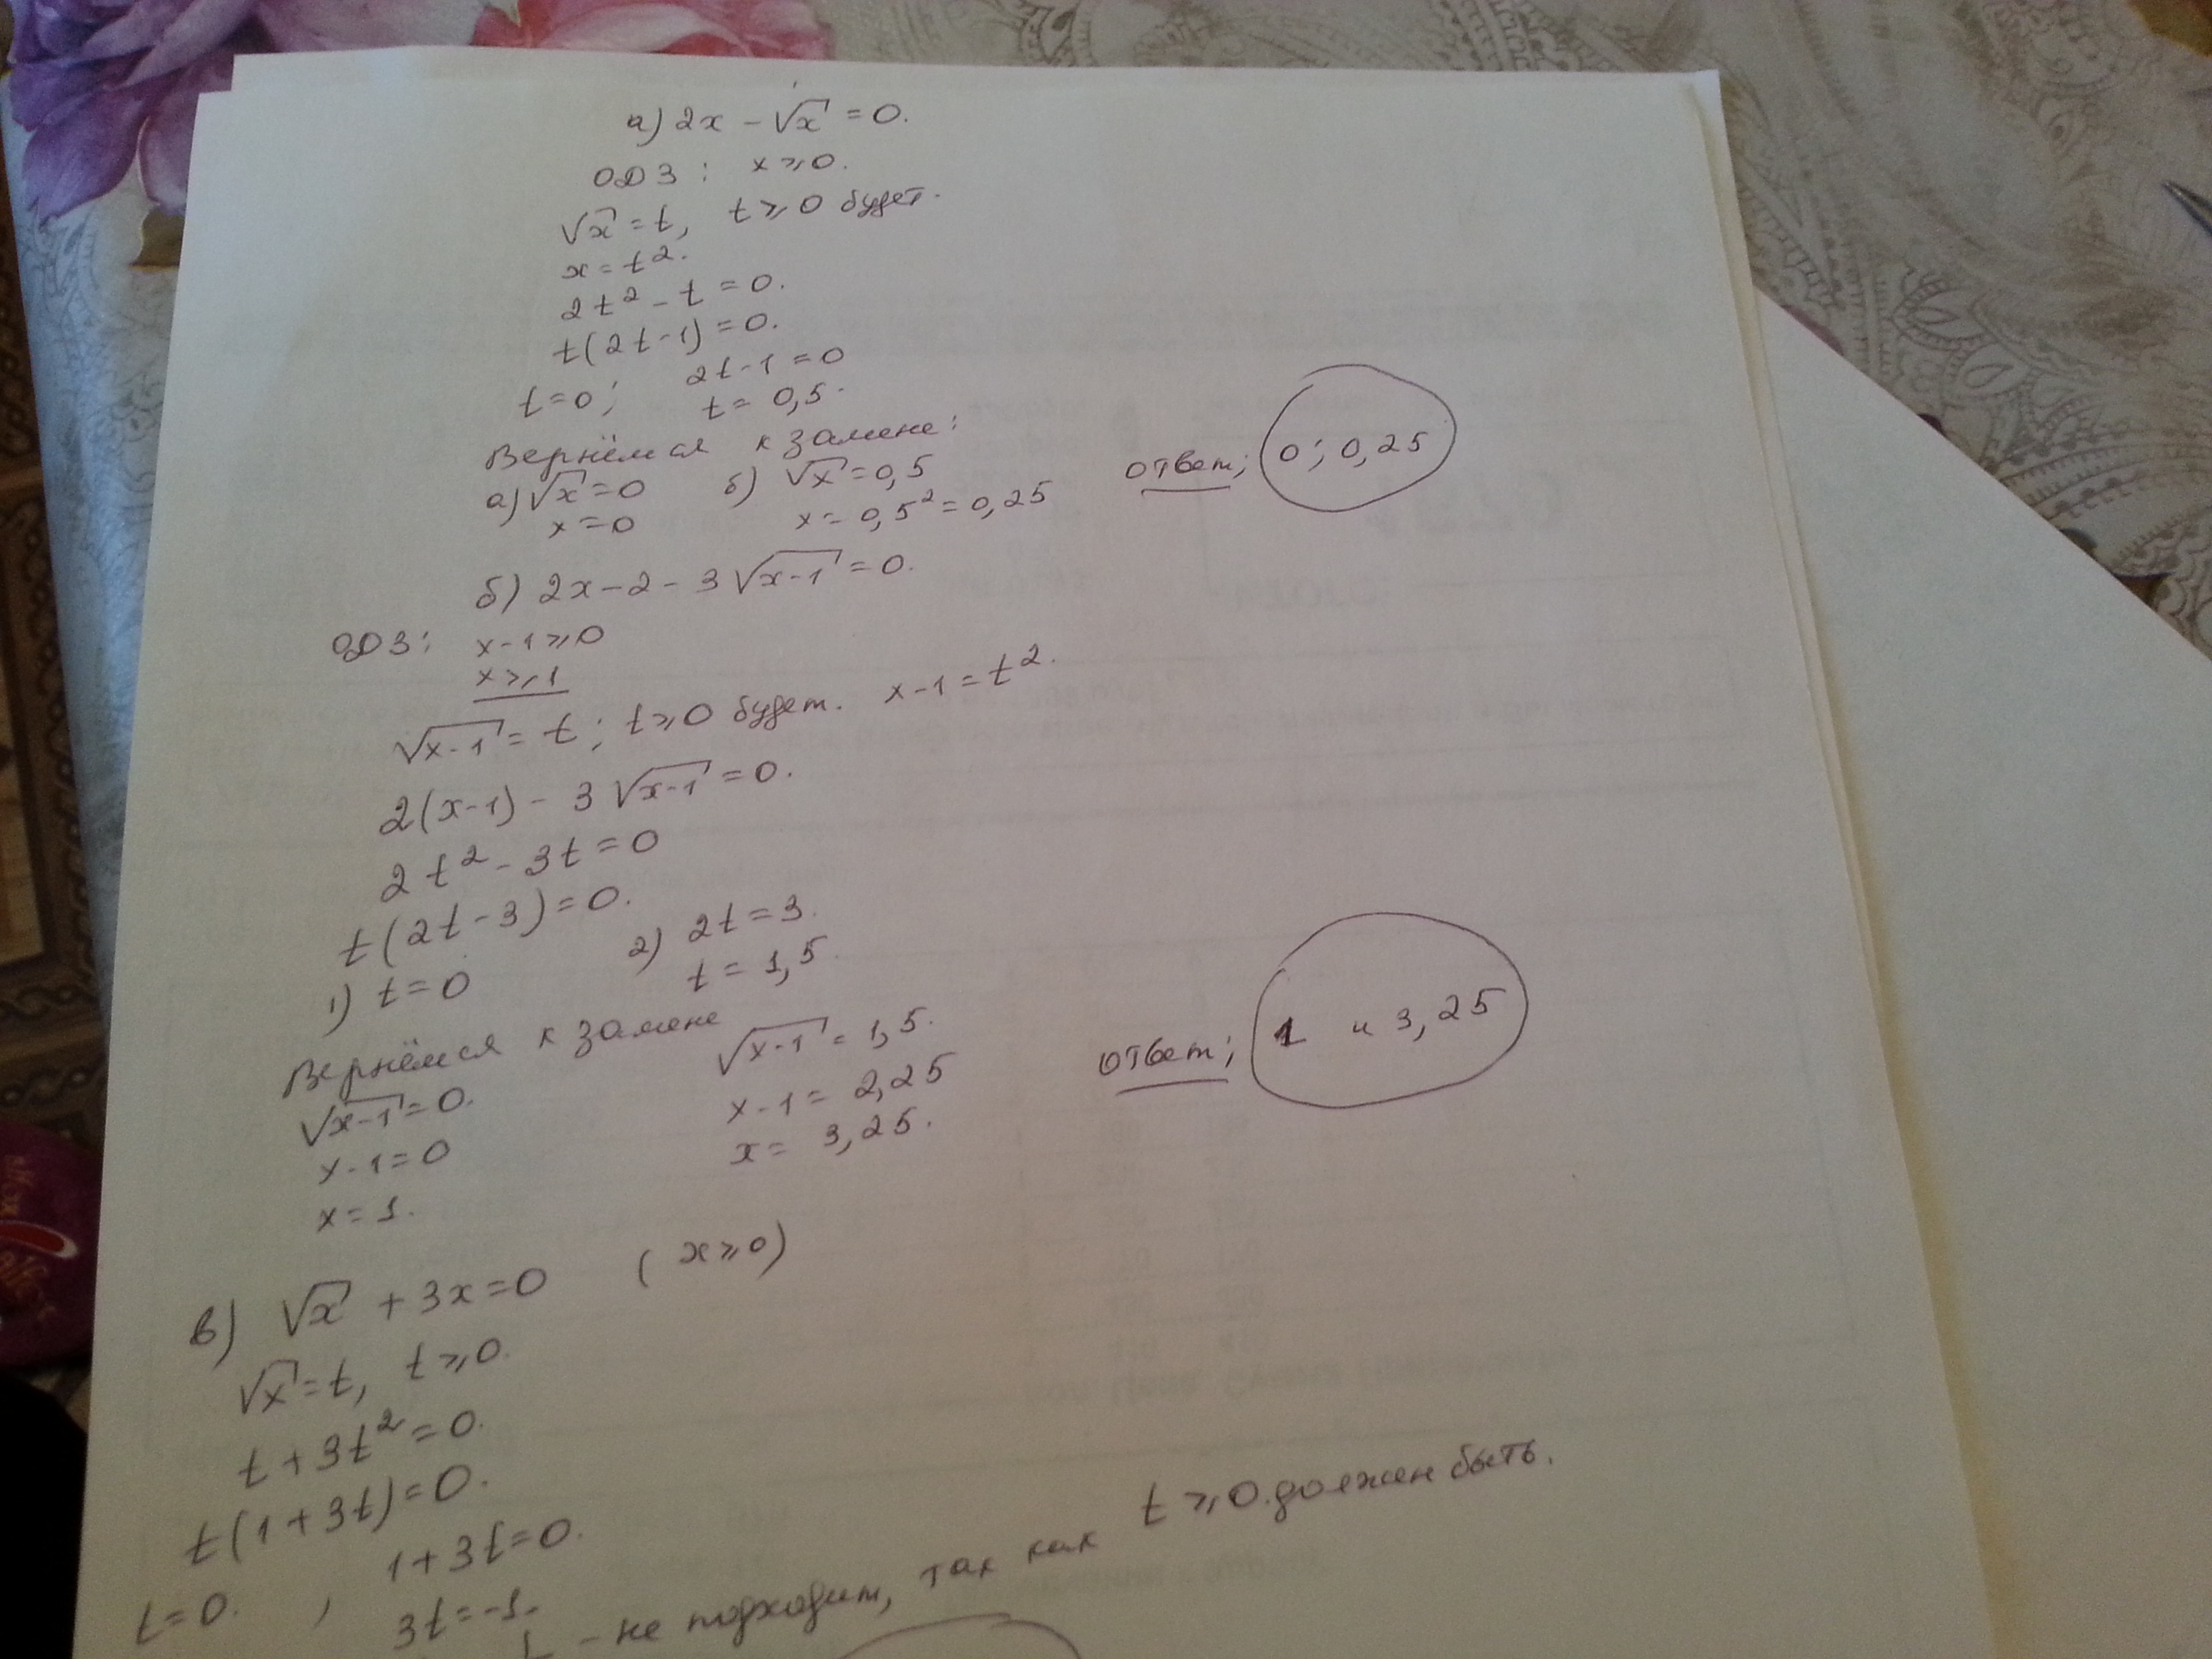 а) 2x - √x = 0.
ОДЗ: x ≥ 0.
√x = t, t ≥ 0 будет.
x = t².
2t² - t = 0.
t(2t-1) = 0.
t=0; 2t-1=0
t = 0,5.
Вернёмся к замене:
а) √x = 0 б) √x = 0,5
x = 0 x = 0,5² = 0,25
ответ; 0; 0,25
б) 2x-2-3√x-1 = 0.
ОДЗ: x-1 ≥ 0
x ≥ 1
√x-1 = t; t ≥ 0 будет. x-1 = t².
2(x-1) - 3√x-1 = 0.
2t² - 3t = 0
t(2t-3) = 0.
1) t=0 2) 2t = 3.
t = 1,5.
Вернёмся к замене
√x-1 = 0. √x-1 = 1,5.
x-1 = 0 x-1 = 2,25
x = 1. x = 3,25.
ответ; 1 и 3,25
в) √x + 3x = 0 (x ≥ 0)
√x = t, t ≥ 0.
t + 3t² = 0.
t(1+3t) = 0.
t=0. , 1+3t=0.
3t = -1.
- не подходит, так как t ≥ 0. должен быть.